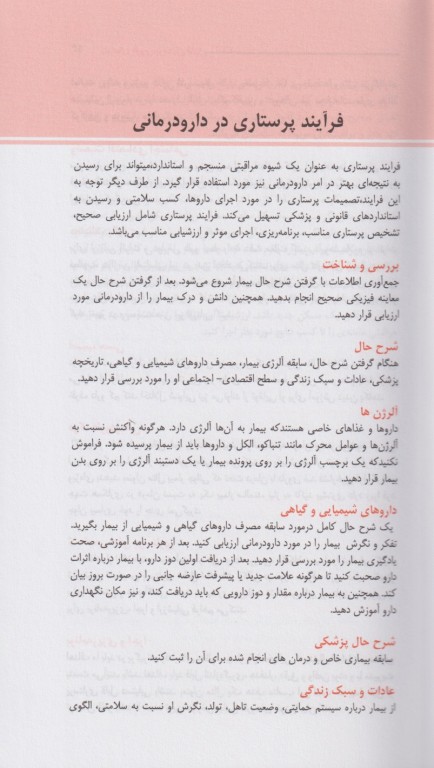 فرآیند پرستاری در دارودرمانی
فرآیند پرستاری به عنوان یک شیوه مراقبتی منسجم و استاندارد،میتواند برای رسیدن
به نتیجه‌ای بهتر در امر دارودرمانی نیز مورد استفاده قرار گیرد. از طرف دیگر توجه به
این فرایند،تصمیمات پرستاری را در مورد اجرای داروها، کسب سلامتی و رسیدن به
استانداردهای قانونی و پزشکی تسهیل می‌کند. فرایند پرستاری شامل ارزیابی صحیح،
تشخیص پرستاری مناسب، برنامه‌ریزی، اجرای موثر و ارزشیابی مناسب می‌باشد.
بررسی و شناخت
جمع‌آوری اطلاعات با گرفتن شرح حال بیمار شروع می‌شود. بعد از گرفتن شرح حال یک
معاینه فیزیکی صحیح انجام بدهید. همچنین دانش و درک بیمار را از دارودرمانی مورد
ارزیابی قرار دهید.
شرح حال
هنگام گرفتن شرح حال، سابقه آلرژی بیمار، مصرف داروهای شیمیایی و گیاهی، تاریخچه
پزشکی، عادات و سبک زندگی و سطح اقتصادی- اجتماعی او را مورد بررسی قرار دهید.
آلرژن ها
داروها و غذاهای خاصی هستندکه بیمار به آن‌ها آلرژی دارد. هرگونه واکنش نسبت به
آلرژن‌ها و عوامل محرک مانند تنباکو، الکل و داروها باید از بیمار پرسیده شود. فراموش
نکنیدکه یک برچسب آلرژی را بر روی پرونده بیمار یا یک دستبند آلرژی را بر روی بدن
بیمار قرار دهید.
داروهای شیمیایی و گیاهی
یک شرح حال کامل درمورد سابقه مصرف داروهای گیاهی و شیمیایی از بیمار بگیرید.
تفکر و نگرش بیمار را در مورد دارودرمانی ارزیابی کنید. بعد از هر برنامه آموزشی، صحت
یادگیری بیمار را مورد بررسی قرار دهید. بعد از دریافت اولین دوز دارو، با بیمار درباره اثرات
دارو صحبت کنید تا هرگونه علامت جدید یا پیشرفت عارضه جانبی را در صورت بروز بیان
کند. همچنین به بیمار درباره مقدار و دوز دارویی که باید دریافت کند، و نیز مکان نگهداری
دارو آموزش دهید.
شرح حال پزشکی
سابقه بیماری خاص و درمان های انجام شده برای آن را ثبت کنید.
عادات و سبک زندگی
از بیمار درباره سیستم حمایتی، وضعیت تاهل، تولد، نگرش او نسبت به سلامتی، الگوی